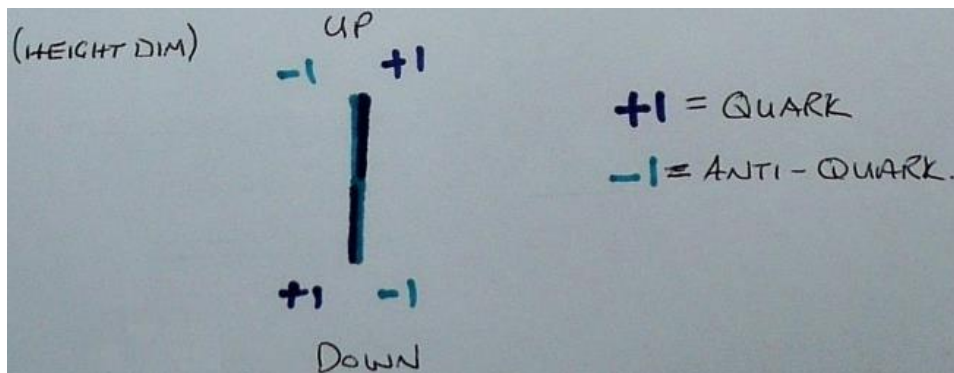 (HEIGHT DIM)
UP
-1 +1
+1 = QUARK
-1 = ANTI-QUARK.
+1 -1
DOWN